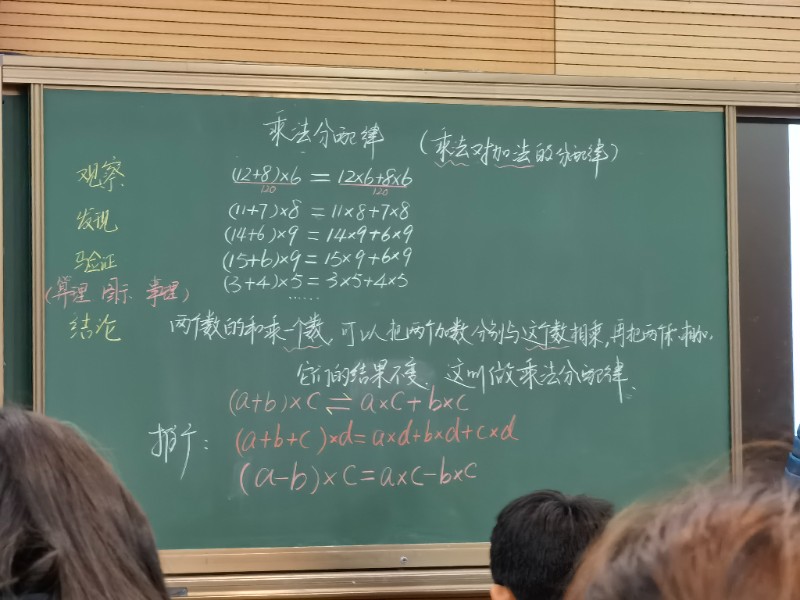 乘法分配律 (乘法对加法的分配律)
观察 (12+8)×6 = 12×6+8×6
120 120
发现 (11+7)×8 = 11×8+7×8
(14+6)×9 = 14×9+6×9
验证 (15+6)×9 = 15×9+6×9
(算理 图示 事理) (3+4)×5 = 3×5+4×5
......
结论 两个数的和乘一个数,可以把两个加数分别与这个数相乘,再把两个积相加,
它们的结果不变.这叫做乘法分配律.
(a+b)×c⇌a×c+b×c
推广: (a+b+c)×d=a×d+b×d+c×d
(a-b)×c=a×c-b×c